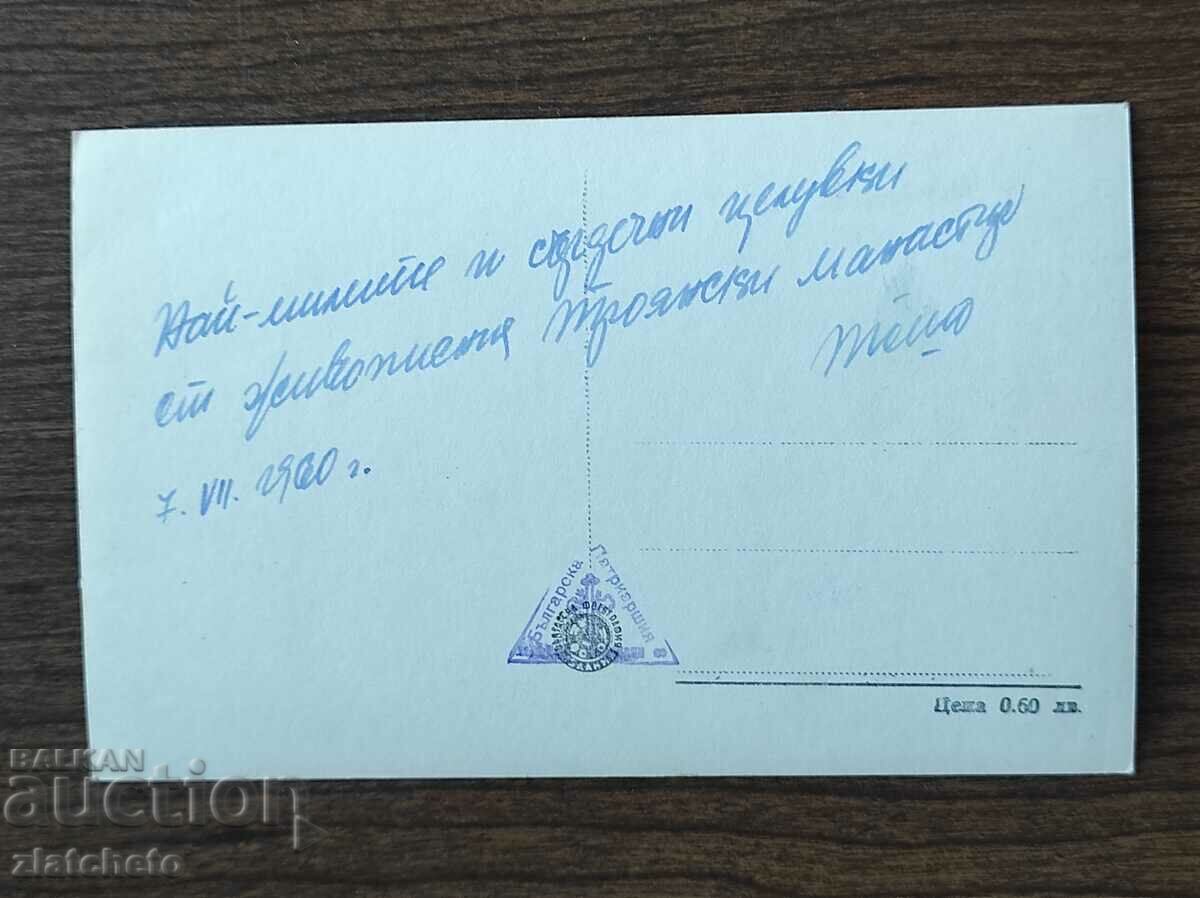 Най-милите и сърдечни целувки
от живописния Троянски манастир
Тошо
7. VII. 1960 г.
Българска Патриаршия
БЪЛГАРСКА ФОТОГРАФИЯ
Цена 0.60 лв.
BALKAN
auction
zlatcheto